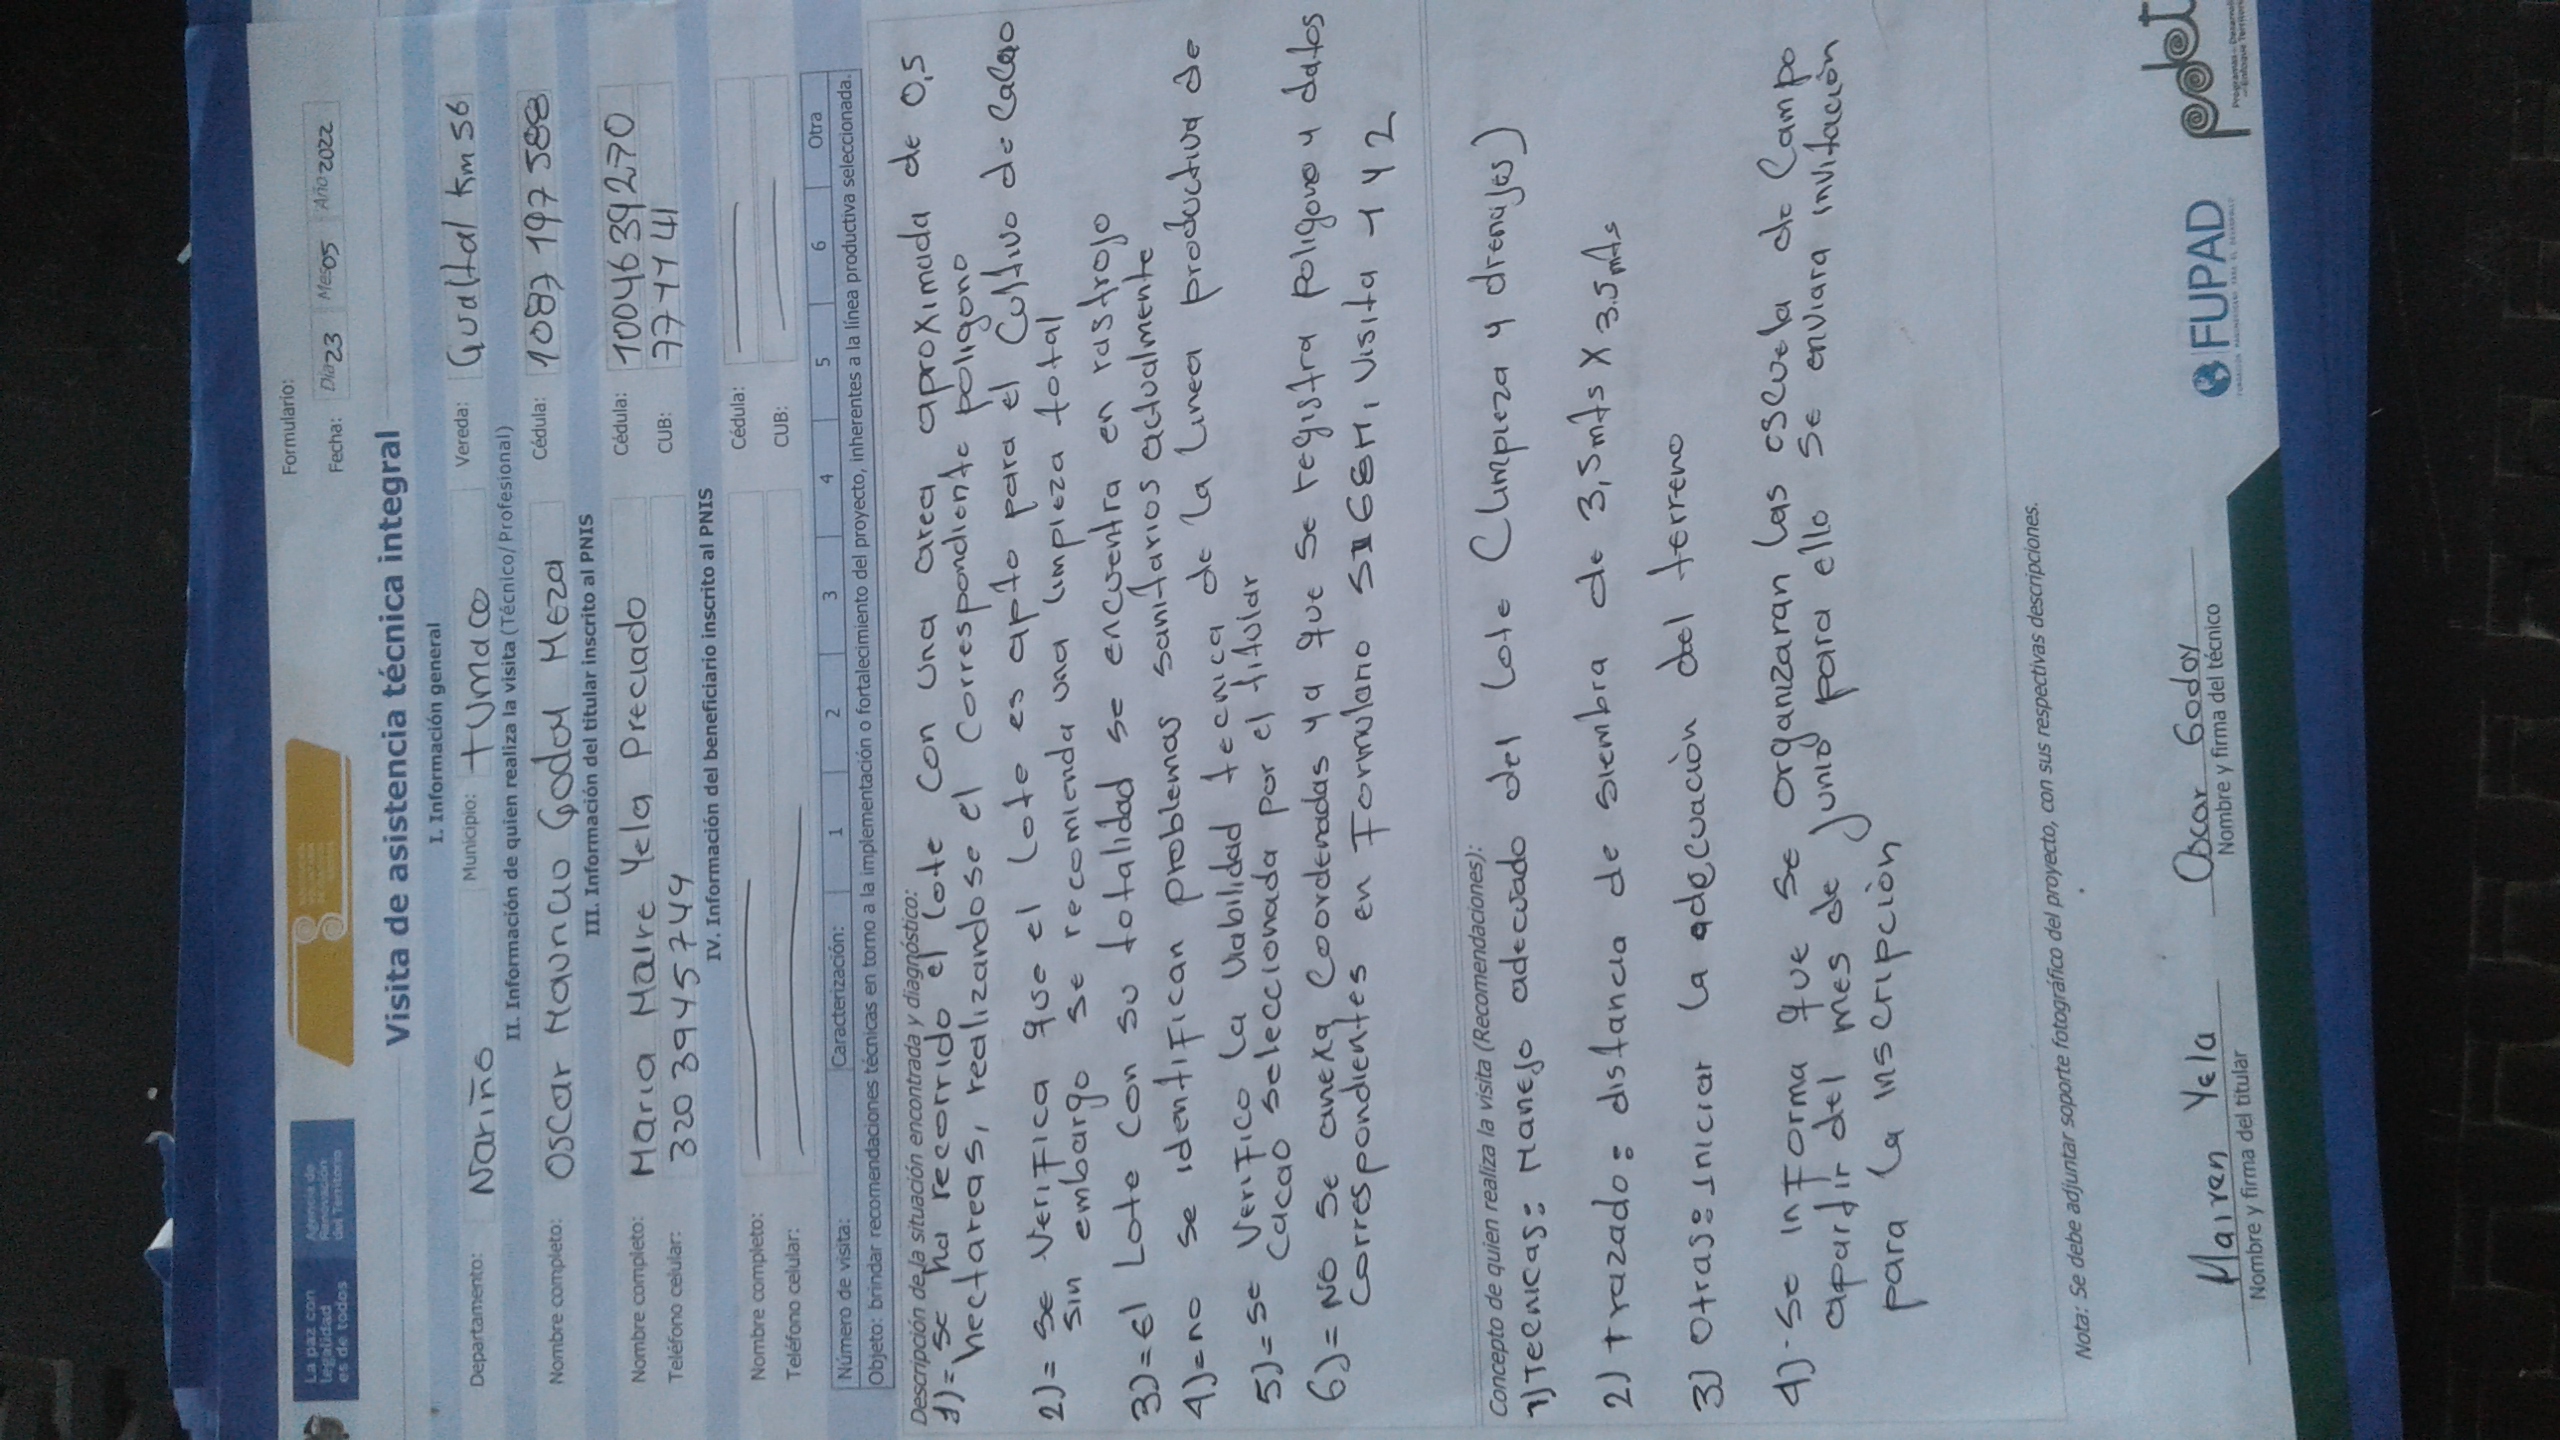 La paz con
legalidad
es de todos
Agencia de
Renovación
del Territorio
Formulario:
Fecha: Día 23 Mes 05 Año 2022
Visita de asistencia técnica integral
I. Información general
Departamento: Nariño Municipio: tumaco Vereda: Gualtal Km 56
II. Información de quien realiza la visita (Técnico/ Profesional)
Nombre completo: Oscar Mauricio Godoy Meza Cédula: 1087197588
III. Información del titular inscrito al PNIS
Nombre completo: Mario Maire Yela Preciado Cédula: 1004639270
Teléfono celular: 3203945744 CUB:
IV. Información del beneficiario inscrito al PNIS
Nombre completo: Cédula:
Teléfono celular: CUB:
Número de visita: Caracterización: 1 2 3 4 5 6 Otra
Objeto: brindar recomendaciones técnicas en torno a la implementación o fortalecimiento del proyecto, inherentes a la línea productiva seleccionada.
Descripción de la situación encontrada y diagnóstico:
1)= se ha recorrido el lote con una area aproximada de 0,5
hectareas, realizandose el correspondiente poligono
2)= se verifica que el lote es apto para el cultivo de cacao
sin embargo se recomienda una limpieza total
3)= el lote con su totalidad se encuentra en rastrojo
4)= no se identifican problemas sanitarios actualmente
5)= se verifico la viabilidad tecnica de la linea productiva de
cacao seleccionada por el titular
6)= No se anexa coordenadas ya que se registra poligono y datos
correspondientes en Formulario visita 1 y 2
Concepto de quien realiza la visita (Recomendaciones):
1) Tecnicas: Manejo adecuado del lote (limpieza y drenajes)
2) trazado: distancia de siembra de 3,5 mts X 3.5 mts
3) otras: Iniciar la adecuación del terreno
4)- se informa que se organizaran las escuela de Campo
apartir del mes de junio para ello se enviara invitación
para la inscripción
Nota: Se debe adjuntar soporte fotográfico del proyecto, con sus respectivas descripciones.
Mairen Yela
Nombre y firma del titular
Oscar Godoy
Nombre y firma del técnico
FUPAD
pdet